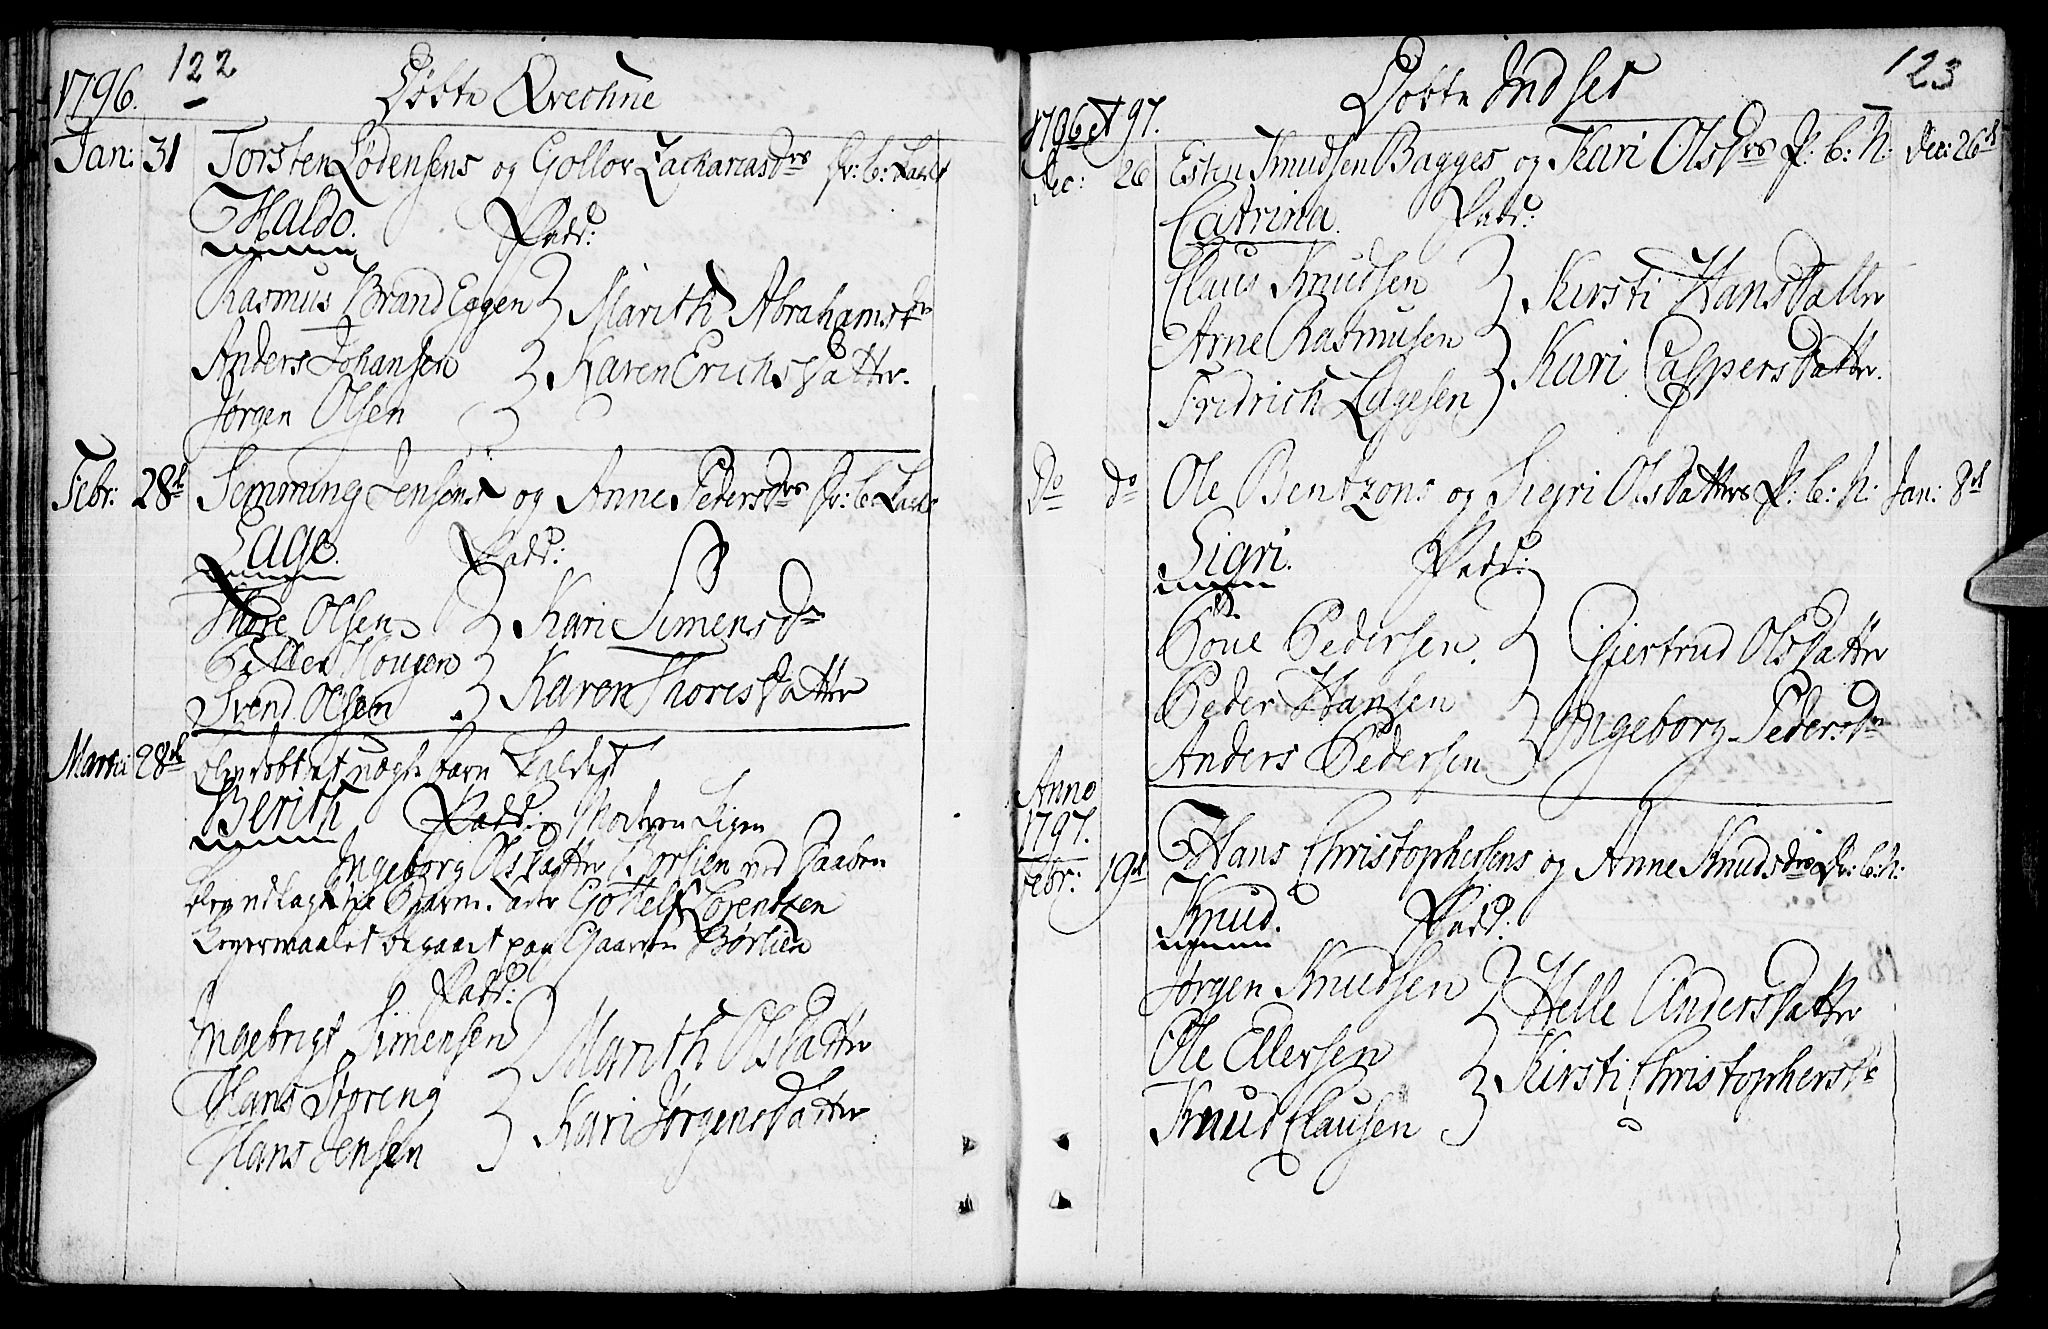 122
1796.
Døbte Qvechne
Jan: 31 Torsten Lødensens og Gollov Zachariasdrs
Haldo. Fadd:
Rasmus Brand Eggen Marith Abrahamsdr
Anders Johansen Karen Erichsdatter.
Jørgen Olsen
Febr: 28d Semming Jensens og Anne Pedersdrs
Lage. Fadd:
Thore Olsen Kari Simensdr
Peder Hougen Karen Thoresdatter
Svend Olsen
Martii 28de blev døbt et uægte barn kaldet
Berith Moderen Pigen
Ingeborg Olsdatter Børlien
Gottelf Lorentzen
Leyermaalet begaaet paa Gaarden Børlien
Fadd:
Ingebrigt Simensen Marith Olsdatter
Hans Støreng Kari Jørgensdatter
Hans Jensen
123
Døbte Indset
1796 et 97.
Dec: 26 Esten Knudsen Bagges og Kari Olsdrs P. b: h: Dec: 26d
Catrina. Fadd:
Claus Knudsen Kirsti Hansdatter
Arne Rasmusen Kari Caspersdatter.
Fredrich Lagesen
Do do Ole Bentzons og Sigri Olsdatters P: b: h: Jan: 8d
Sigri. Fadd:
Poul Pedersen. Giertrud Olsdatter
Peder Hansen Ingeborg Pedersdr
Anders Pedersen
Anno
1797.
Febr: 19d Hans Christophersens og Anne Knudsdrs b: h:
Knud. Fadd:
Jørgen Knudsen Helle Andersdatter
Ole Ellersen Kirsti Christophersdr
Knud Clausen